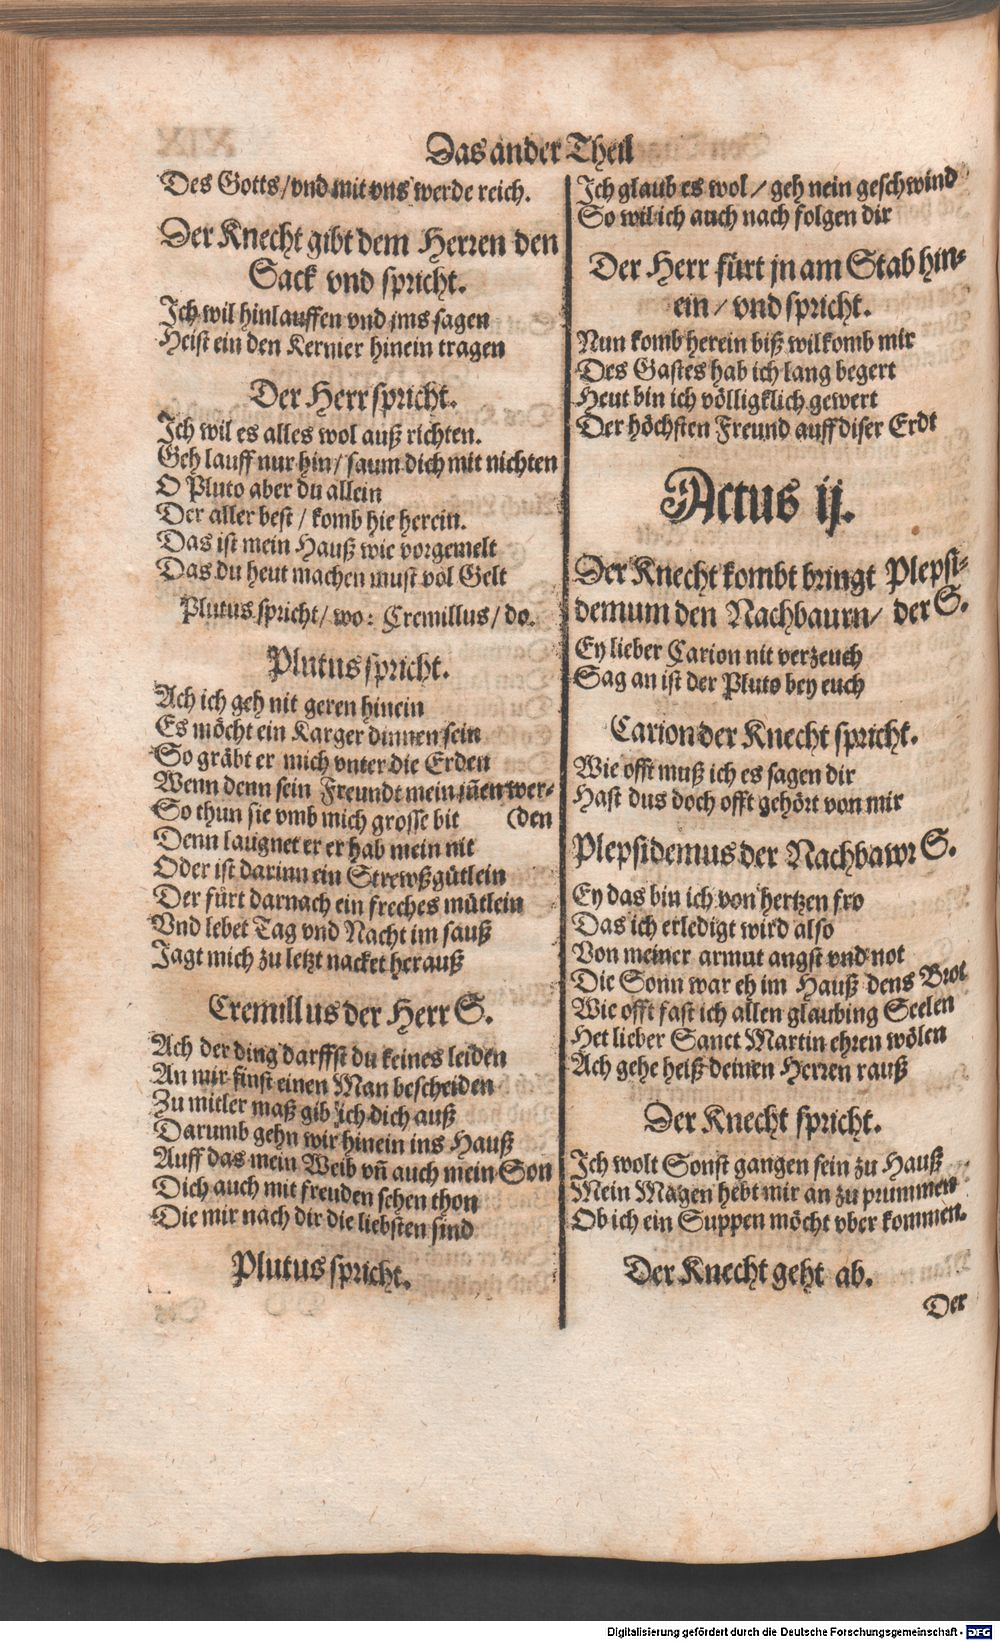 Das ander Theil
Des Gotts / vnd mit vns werde reich.
Der Knecht gibt dem Herren den
Sack vnd spricht.
Ich wil hinlauffen vnd jms sagen
Heist ein den Kerner hinein tragen
Der Herr spricht.
Ich wil es alles wol auß richten.
Geh lauff nur hin / saum dich mit nichten
O Pluto aber du allein
Der aller best / komb hie herein.
Das ist mein Hauß wie vorgemelt
Das du heut machen must vol Gelt
Plutus spricht / wo: Cremillus / do.
Plutus spricht.
Ach ich geh nit geren hinein
Es möcht ein Karger dinnen sein
So gräbt er mich vnter die Erden
Wenn denn sein Freundt mein jnen wer-
So thun sie vmb mich grosse bit (den
Denn laugnet er er hab mein nit
Oder ist darinn ein Strewßgütlein
Der fürt darnach ein freches mütlein
Vnd lebet Tag vnd Nacht im sauß
Jagt mich zu letzt nacket herauß
Cremillus der Herr S.
Ach der ding darffst du keines leiden
An mir finst einen Man bescheiden
Zu mitler maß gib ich dich auß
Darumb gehn wir hinein ins Hauß
Auff das mein Weib vñ auch mein Son
Dich auch mit freuden sehen thon
Die mir nach dir die liebsten sind
Plutus spricht.
Ich glaub es wol / geh nein geschwind
So wil ich auch nach folgen dir
Der Herr fürt jn am Stab hin-
ein / vnd spricht.
Nun komb herein biß wilkomb mir
Des Gastes hab ich lang begert
Heut bin ich völligklich gewert
Der höchsten Freund auff diser Erdt
Actus ij.
Der Knecht kombt bringt Plepsi-
demum den Nachbaurn / der S.
Ey lieber Carion nit verzeuch
Sag an ist der Pluto bey euch
Carion der Knecht spricht.
Wie offt muß ich es sagen dir
Hast dus doch offt gehört von mir
Plepsidemus der Nachbawr S.
Ey das bin ich von hertzen fro
Das ich erledigt wird also
Von meiner armut angst vnd not
Die Sonn war eh im Hauß dens Brot
Wie offt fast ich allen glaubing Seelen
Het lieber Sanct Martin ehren wölen
Ach gehe heiß deinen Herren rauß
Der Knecht spricht.
Ich wolt Sonst gangen sein zu Hauß
Mein Magen hebt mir an zu prummen
Ob ich ein Suppen möcht vber kommen.
Der Knecht geht ab.
Der
Digitalisierung gefördert durch die Deutsche Forschungsgemeinschaft - DFG